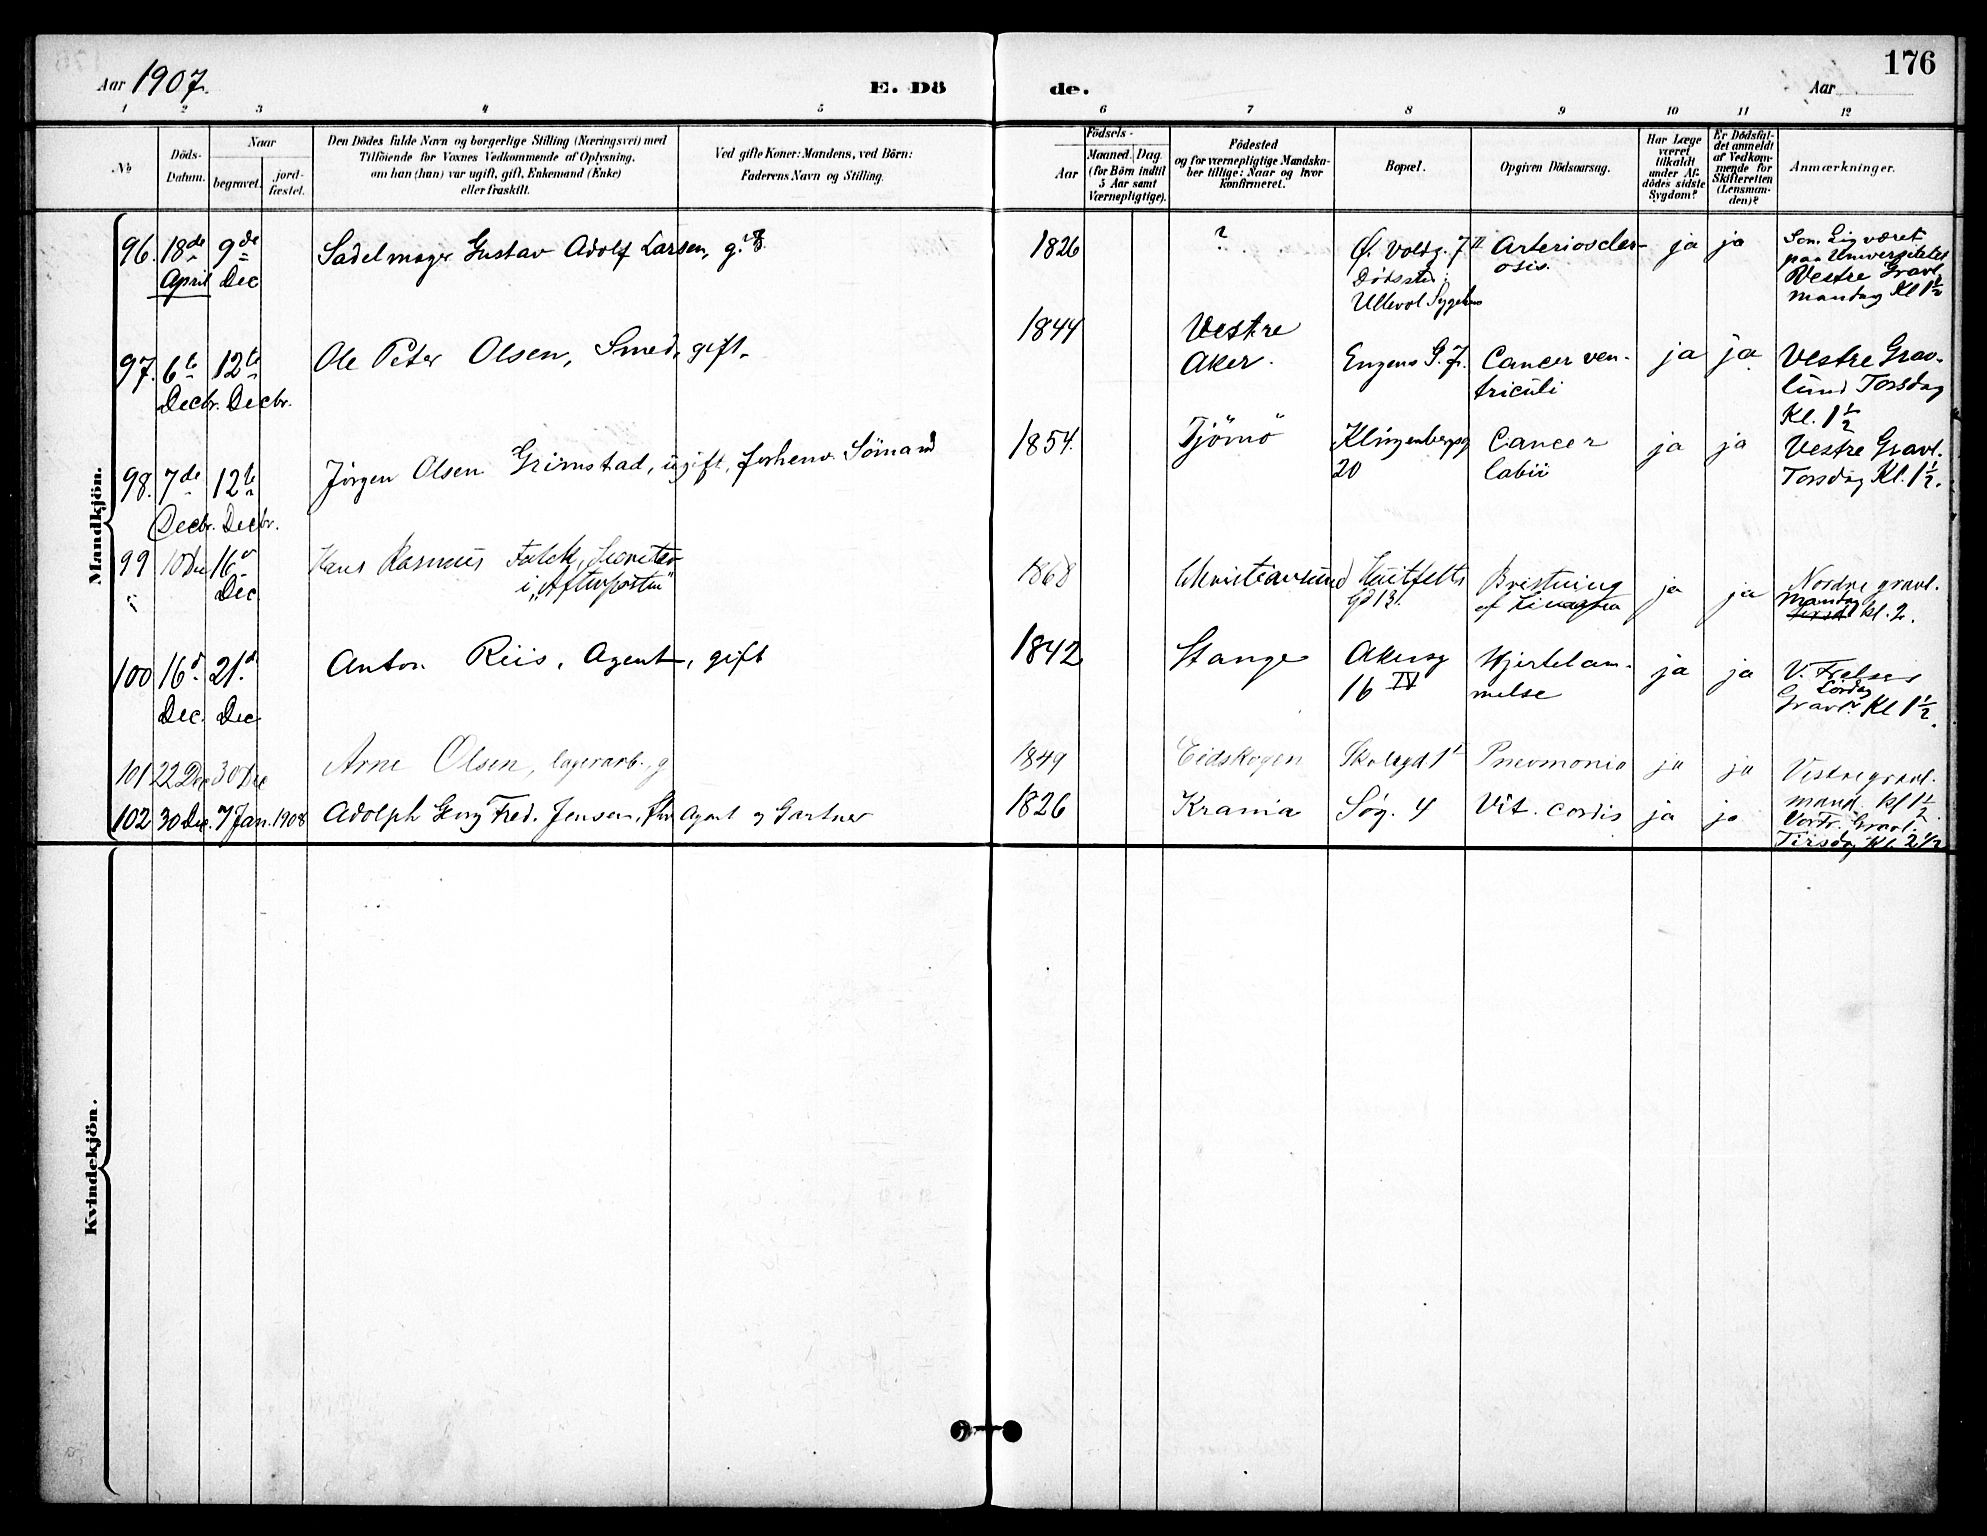 176
Aar 1907. E. Dö de. Aar
1 2 3 4 5 6 7 8 9 10 11 12
No
Döds-Datum.
Naar
begravet.
jordfæstet.
Den Dödes fulde Navn og borgerlige Stilling (Næringsvei) med
Tilföiende for Voxnes Vedkommende af Oplysning,
om han (hun) var ugift, gift, Enkemand (Enke)
eller fraskilt.
Ved gifte Koner: Mandens, ved Börn:
Faderens Navn og Stilling.
Födsels-
Aar
Maaned. Dag.
(for Börn indtil
5 Aar samt
Værnepligtige).
Födested
og for værnepligtige Mandskaber tillige: Naar og hvor
konfirmeret.
Bopæl.
Opgiven Dödsaarsag.
Har Læge
været
tilkaldt
under Afdödes sidste
Sygdom?
Er Dödsfaldet anmeldt
af Vedkommende for
Skifteretten
(Lensmanden)?
Anmærkninger.
Mandkjön.
96. 18de April 9de Dec Sadelmager Gustav Adolf Larsen, g. 1826 ? Ö. Voldg. 7 II Dödssted: Ullevol Sygehus Arteriosclerosis. ja ja Som Lig været paa Universitetet Vestre Gravl. mandag Kl 1½
97. 6te Decbr. 12te Decbr. Ole Peter Olsen, Smed, gift. 1844 Vestre Aker. Engens G. 7. Cancer ventriculi ja ja Vestre Gravlund Torsdag Kl. 1½
98. 7de Decbr. 12te Decbr. Jörgen Olsen Grimstad, ugift, forhenv. Sömand 1854. Tjömö Klingenbergg 20 Cancer labii ja ja Vestre Gravl. Torsdag Kl. 1½.
99 10 Dec 16d Dec. Hans Rasmus Falck, i "Aftenposten" 1868 Christiansund Huitfelts Gd 13. Bristning af ja ja Nordre gravl. Mandag kl. 2.
100 16d. Dec. 21d. Dec Anton Riis, Agent, gift 1842 Stange Akersg 16 IV Hjertelammelse ja ja V. Frelsers Gravl. Lördag Kl 1½.
101 22 Dec 30 Dec Arne Olsen, lagerarb., g 1849 Eidskogen Skolegd 1 Pneumonia ja ja Vestre gravl. mand. kl 1½.
102 30 Dec. 7 Jan. 1908 Adolph Georg Fred. Jensen, Agent og Gartner 1826 Krania Søg. 4 Vit. cordis ja ja Gravl. Tirsdag Kl 2½
Kvindekjön.